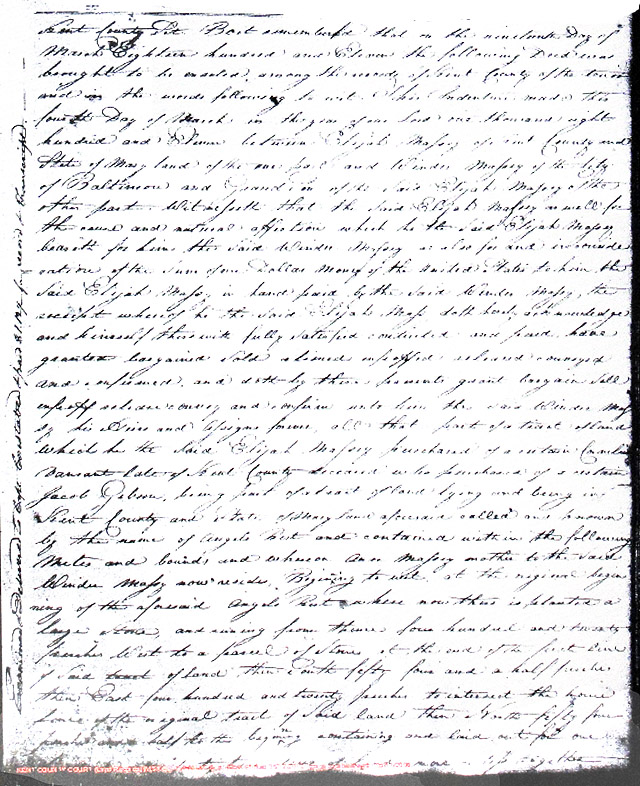 Kent County Sct. Be it remembered that on the nineteenth Day of
March Eighteen hundred and Eleven the following Deed was
brought to be enrolled among the records of Kent County of the tenor
and in the words following to wit. This Indenture made this
fourth Day of March in the year of our Lord one thousand eight
hundred and Eleven between Elijah Massey of Kent County and
State of Maryland of the one part and Winder Massey of the City
of Baltimore and Grandson of the said Elijah Massey of the
other part Witnesseth that the said Elijah Massey as well for
the cause and natural affection which he the said Elijah Massey
beareth for him the said Winder Massey as also for and in consider
ation of the sum of one Dollar Money of the United States to him the
said Elijah Massey in hand paid by the said Winder Massey, the
receipt whereof he the said Elijah Massy doth hereby acknowledge
and himself therewith fully satisfied contented and paid have
granted bargained sold aliened enfeoffed released conveyed
and confirmed, and doth by these presents grant bargain sell
enfeoff release convey and confirm unto him the said Winder Mas
sy his Heirs and Assigns forever, all that part of a tract of land
which he the said Elijah Massey purchased of a certain
Dansant late of Kent County deceased who purchased of a certain
Jacob Gibson, being part of a tract of land lying and being in
Kent County and state of Maryland aforesaid called and known
by the name of Angels Rest and contained within the following
Metes and bounds and whereon Massey mother to the said
Winder Massy now reside, Beginning to wit, at the original begin
ning of the aforesaid Angels Rest where now there is planted a
large Stone, and running from thence four hundred and twenty
perches West to a parcel of Stones at the end of the first line
of said tract of land then South fifty four and a half perches
then East four hundred and twenty perches to intersect the
line of the original tract of said land then North fifty four
perches and a half to the beginning containing and laid out for one
more or less together
Examined & Delivered to
KENT COUNTY COURT